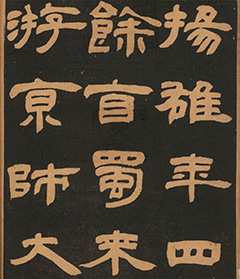 揚雄年四
餘自蜀来
游京師大